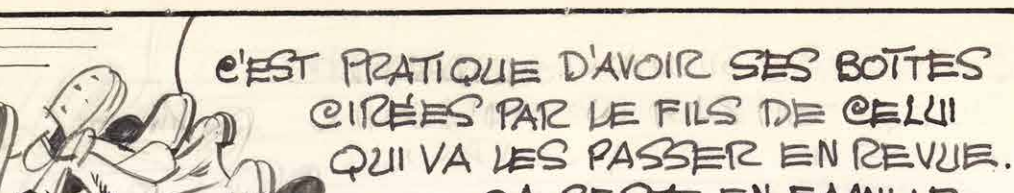 C'EST PRATIQUE D'AVOIR SES BOTTES
CIRÉES PAR LE FILS DE CELUI
QUI VA LES PASSER EN REVUE.
ÇA RESTE EN FAMILLE